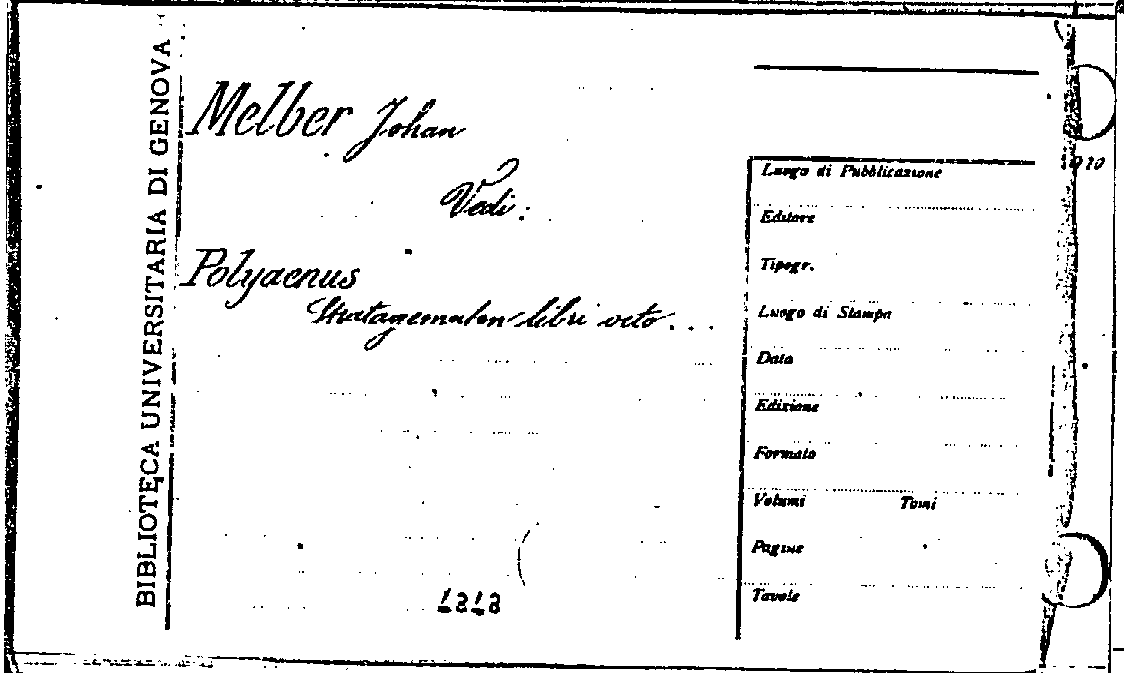 BIBLIOTECA UNIVERSITARIA DI GENOVA
Melber Johan
Vedi:
Polyaenus
Stratagematon libri octo...
1818
Luogo di Pubblicazione
Editore
Tipogr.
Luogo di Stampa
Data
Edizione
Formato
Volumi Tomi
Pagine
Tavole